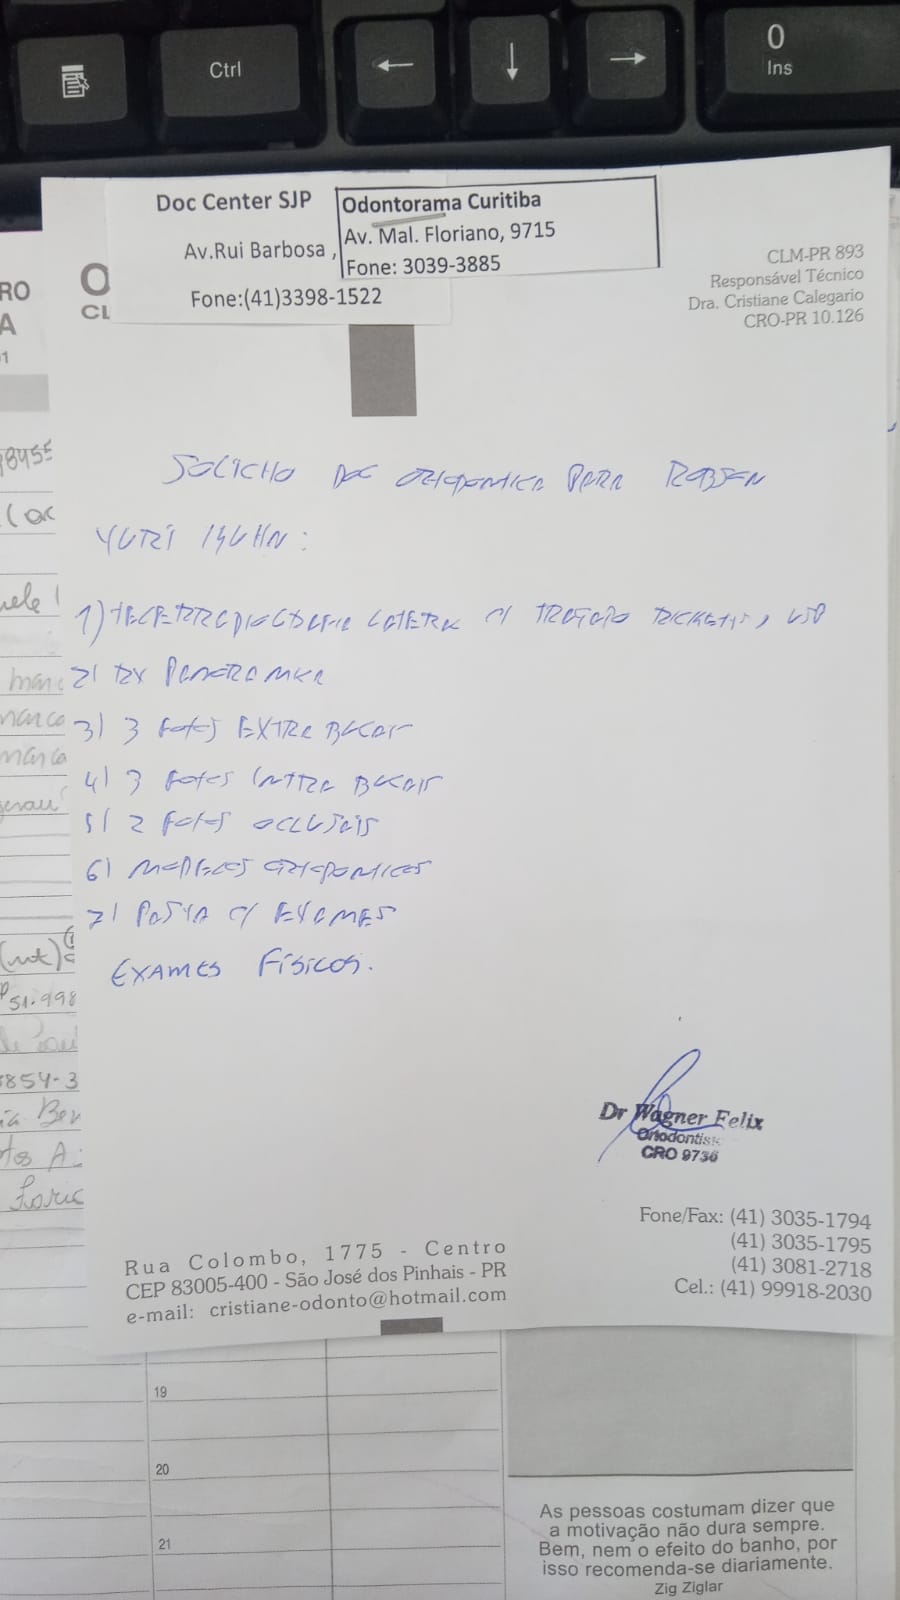 Ctrl
0
Ins
Doc Center SJP
Av.Rui Barbosa ,
Fone:(41)3398-1522
Odontorama Curitiba
Av. Mal. Floriano, 9715
Fone: 3039-3885
CLM-PR 893
Responsável Técnico
Dra. Cristiane Calegario
CRO-PR 10.126
O
CL
RO
A
SOLICITO DOC ORTODONTICA PARA ROBSON
YURI KUHN:
1) TELERRADIOGRAFIA LATERAL C/ TRAÇADO RICKETTS, USP
2) RX PANORAMICA
3) 3 FOTOS EXTRA BUCAIS
4) 3 FOTOS INTRA BUCAIS
5) 2 FOTOS OCLUSAIS
6) MODELOS ORTODONTICOS
7) PASTA C/ EXAMES
EXAMES FÍSICOS.
Dr Wagner Felix
Ortodontista
CRO 9736
Fone/Fax: (41) 3035-1794
(41) 3035-1795
(41) 3081-2718
Cel.: (41) 99918-2030
Rua Colombo, 1775 - Centro
CEP 83005-400 - São José dos Pinhais - PR
e-mail: cristiane-odonto@hotmail.com
19
20
21
As pessoas costumam dizer que
a motivação não dura sempre.
Bem, nem o efeito do banho, por
isso recomenda-se diariamente.
Zig Ziglar